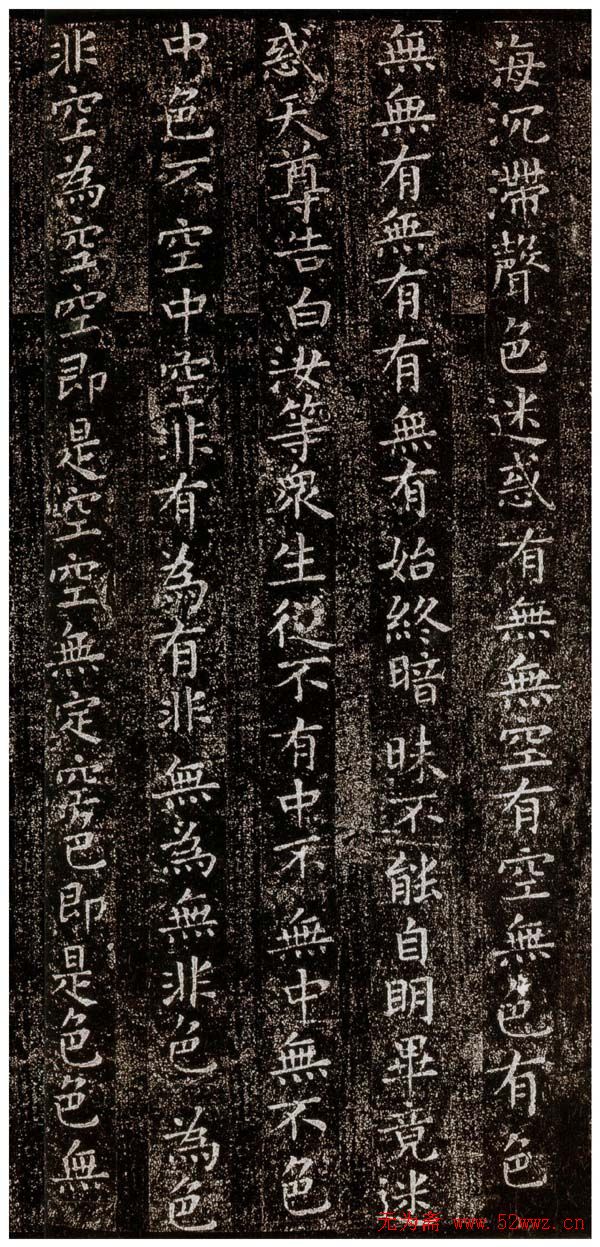 海沉滯聲色迷惑有無無空有空無色有色
無無有無有有無有始終暗昧不能自明畢竟迷
惑天尊告白汝等眾生從不有中不無中無不色
中色不空中空非有為有非無為無非色為色
非空為空空即是空空無定空色即是色色無
无为斋 www.52wwz.cn